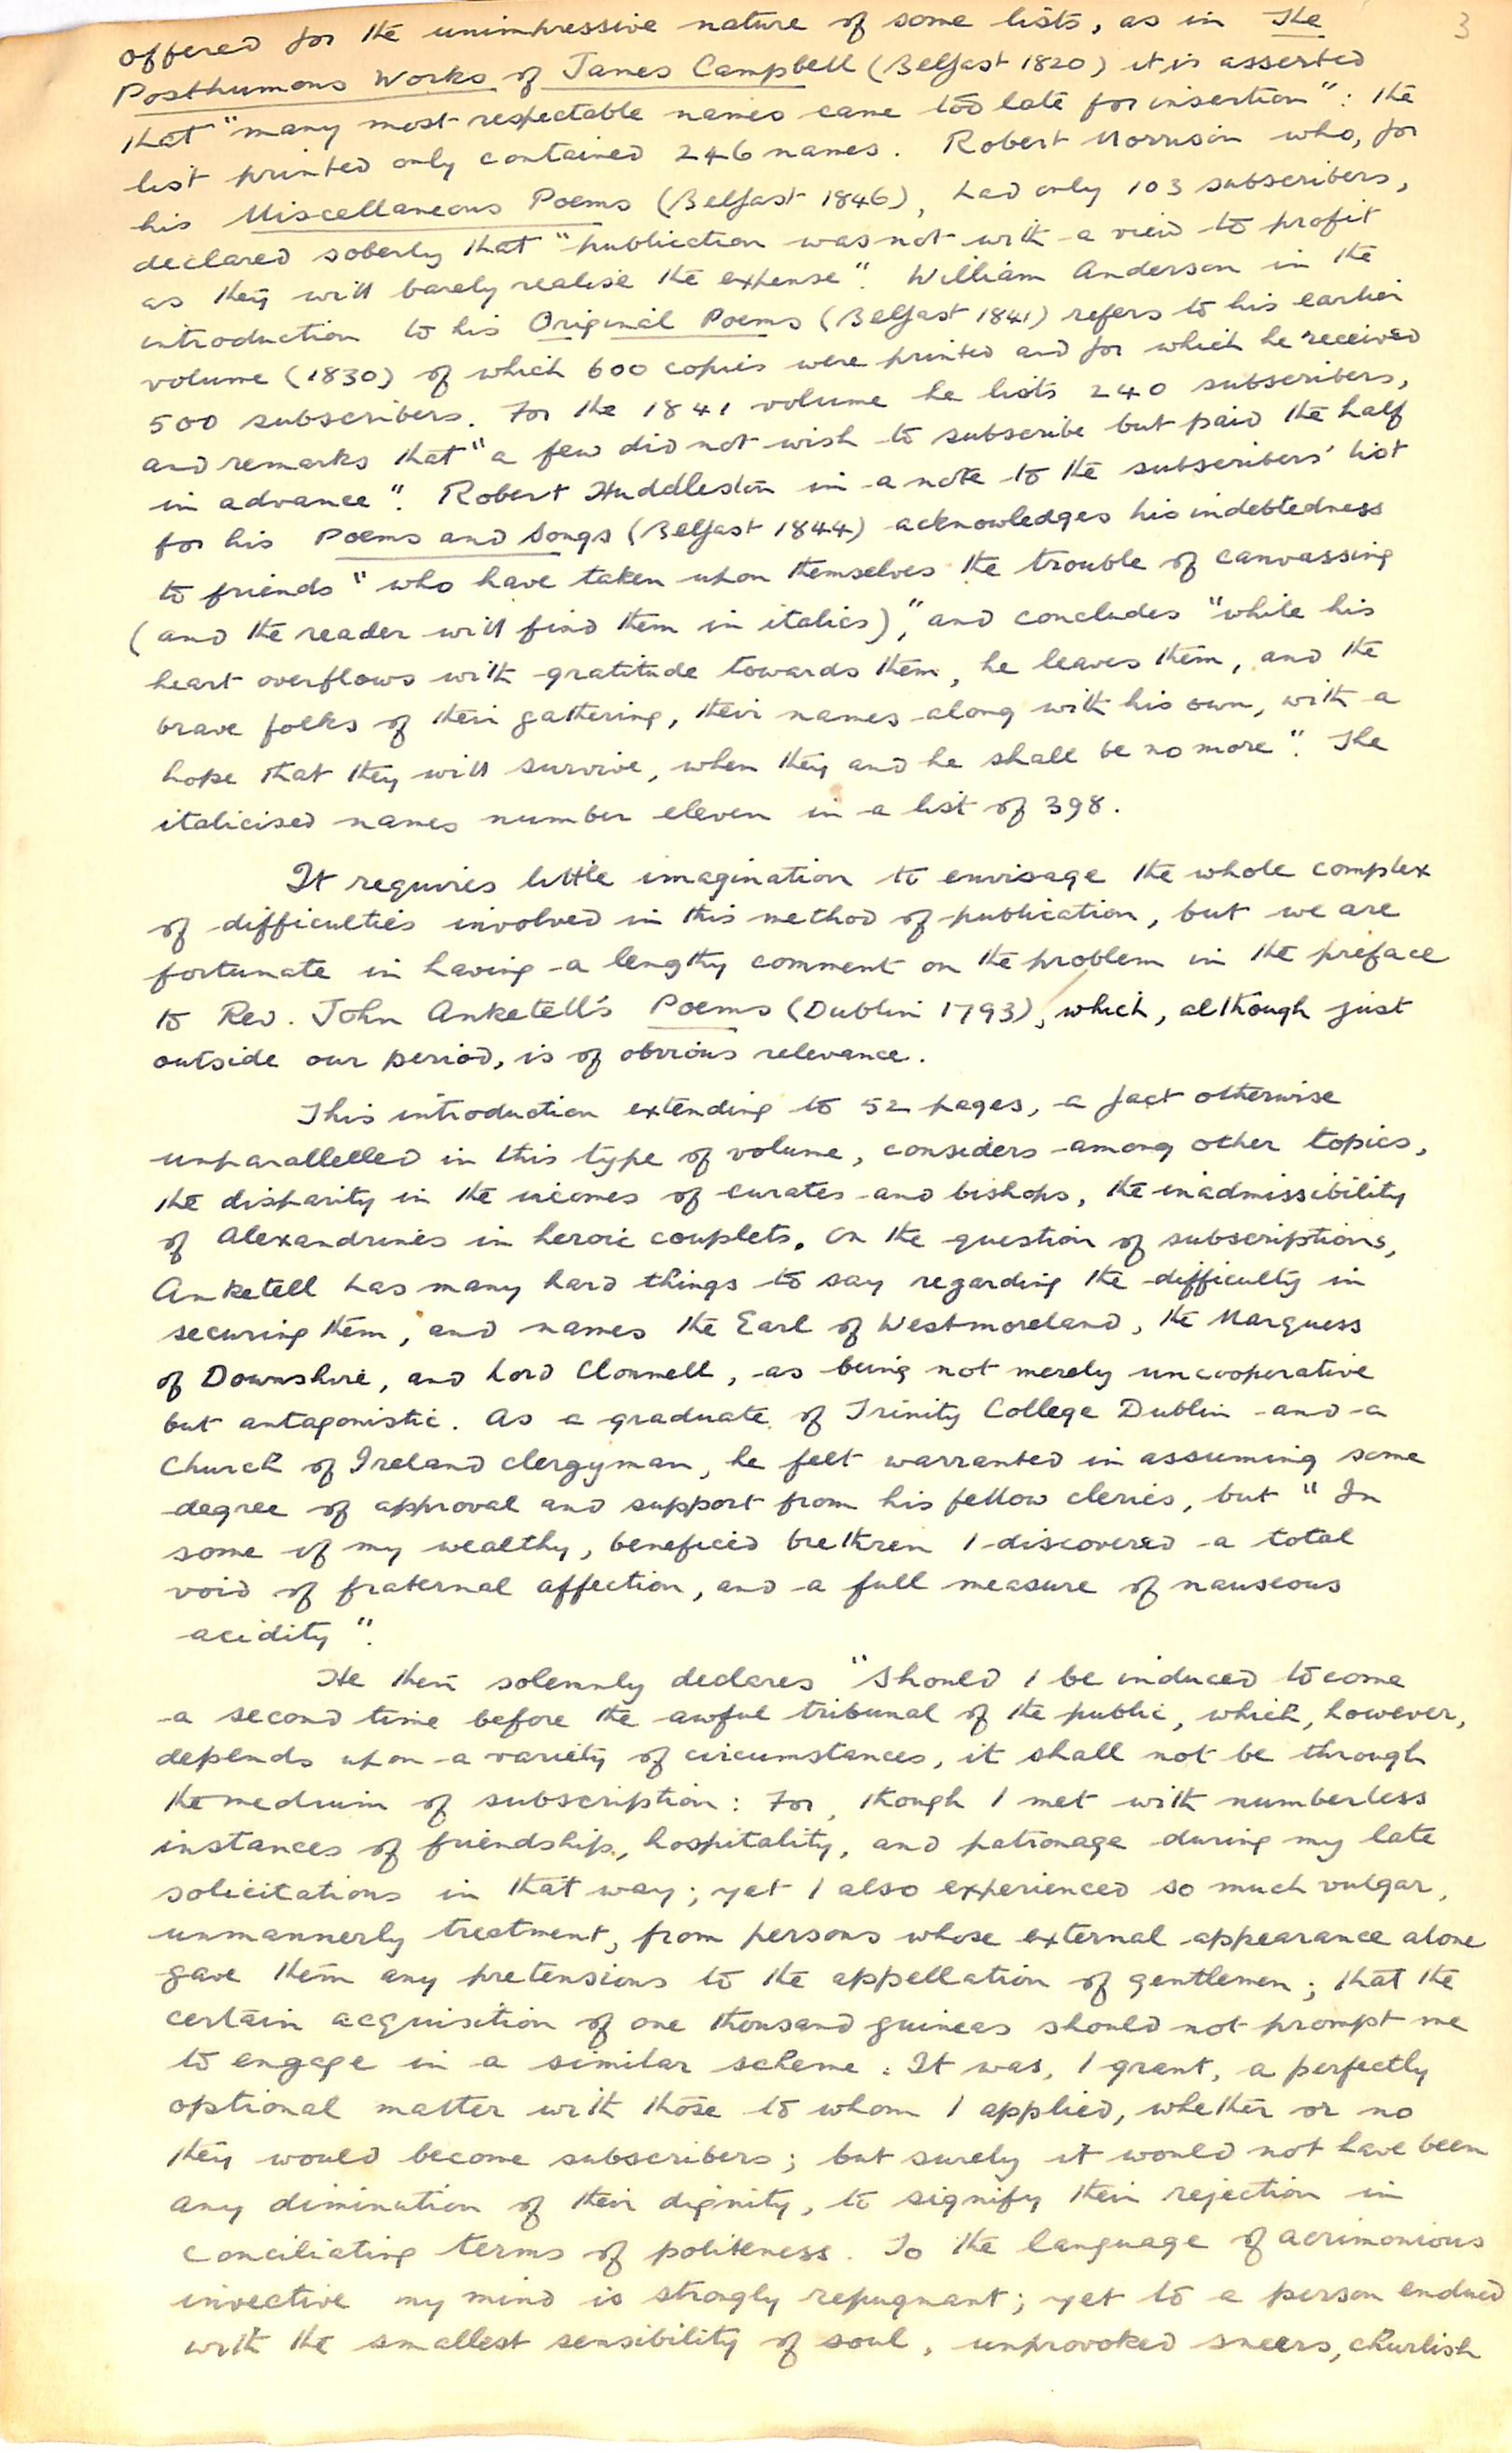 3
offered for the unimpressive nature of some lists, as in The
Posthumous Works of James Campbell (Belfast 1820) it is asserted
that "many most respectable names came too late for insertion": the
list printed only contained 246 names. Robert Morrison who, for
his Miscellaneous Poems (Belfast 1846), had only 103 subscribers,
declared soberly that "publication was not with a view to profit
as they will barely realise the expense". William Anderson in the
introduction to his Original Poems (Belfast 1841) refers to his earlier
volume (1830) of which 600 copies were printed and for which he received
500 subscribers. For the 1841 volume he lists 240 subscribers,
and remarks that "a few did not wish to subscribe but paid the half
in advance". Robert Huddleston in a note to the subscribers' list
for his Poems and Songs (Belfast 1844) acknowledges his indebtedness
to friends "who have taken upon themselves the trouble of canvassing
(and the reader will find them in italics)", and concludes "while his
heart overflows with gratitude towards them, he leaves them, and the
brave folks of their gathering, their names along with his own, with a
hope that they will survive, when they and he shall be no more". The
italicised names number eleven in a list of 398.
It requires little imagination to envisage the whole complex
of difficulties involved in this method of publication, but we are
fortunate in having a lengthy comment on the problem in the preface
to Rev. John Anketell's Poems (Dublin 1793), which, although just
outside our period, is of obvious relevance.
This introduction extending to 52 pages, a fact otherwise
unparallelled in this type of volume, considers among other topics,
the disparity in the incomes of curates and bishops, the inadmissibility
of Alexandrines in heroic couplets. On the question of subscriptions,
Anketell has many hard things to say regarding the difficulty in
securing them, and names the Earl of Westmoreland, the Marquess
of Downshire, and Lord Clonmell, as being not merely uncooperative
but antagonistic. As a graduate of Trinity College Dublin and a
Church of Ireland clergyman, he felt warranted in assuming some
degree of approval and support from his fellow clerics, but "In
some of my wealthy, beneficed brethren I discovered a total
void of fraternal affection, and a full measure of nauseous
acidity".
He then solemnly declares "Should I be induced to come
a second time before the awful tribunal of the public, which, however,
depends upon a variety of circumstances, it shall not be through
the medium of subscription: For, though I met with numberless
instances of friendship, hospitality, and patronage during my late
solicitations in that way; yet I also experienced so much vulgar,
unmannerly treatment, from persons whose external appearance alone
gave them any pretensions to the appellation of gentlemen; that the
certain acquisition of one thousand guineas should not prompt me
to engage in a similar scheme: It was, I grant, a perfectly
optional matter with those to whom I applied, whether or no
they would become subscribers; but surely it would not have been
any diminution of their dignity, to signify their rejection in
conciliating terms of politeness. To the language of acrimonious
invective my mind is strongly repugnant; yet to a person endued
with the smallest sensibility of soul, unprovoked sneers, churlish